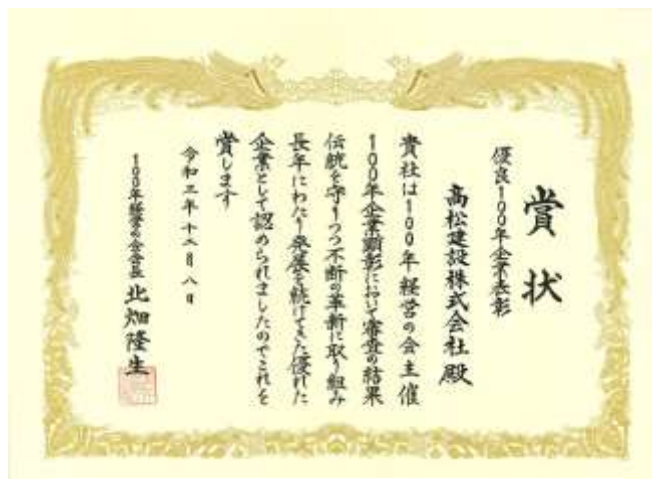 賞状
優良100年企業表彰
高松建設株式会社殿
貴社は100年経営の会主催
100年企業顕彰において審査の結果
伝統を守りつつ不断の革新に取り組み
長年にわたり発展を続けてきた優れた
企業として認められましたのでこれを
賞します
令和三年十二月八日
100年経営の会会長 北畑隆生